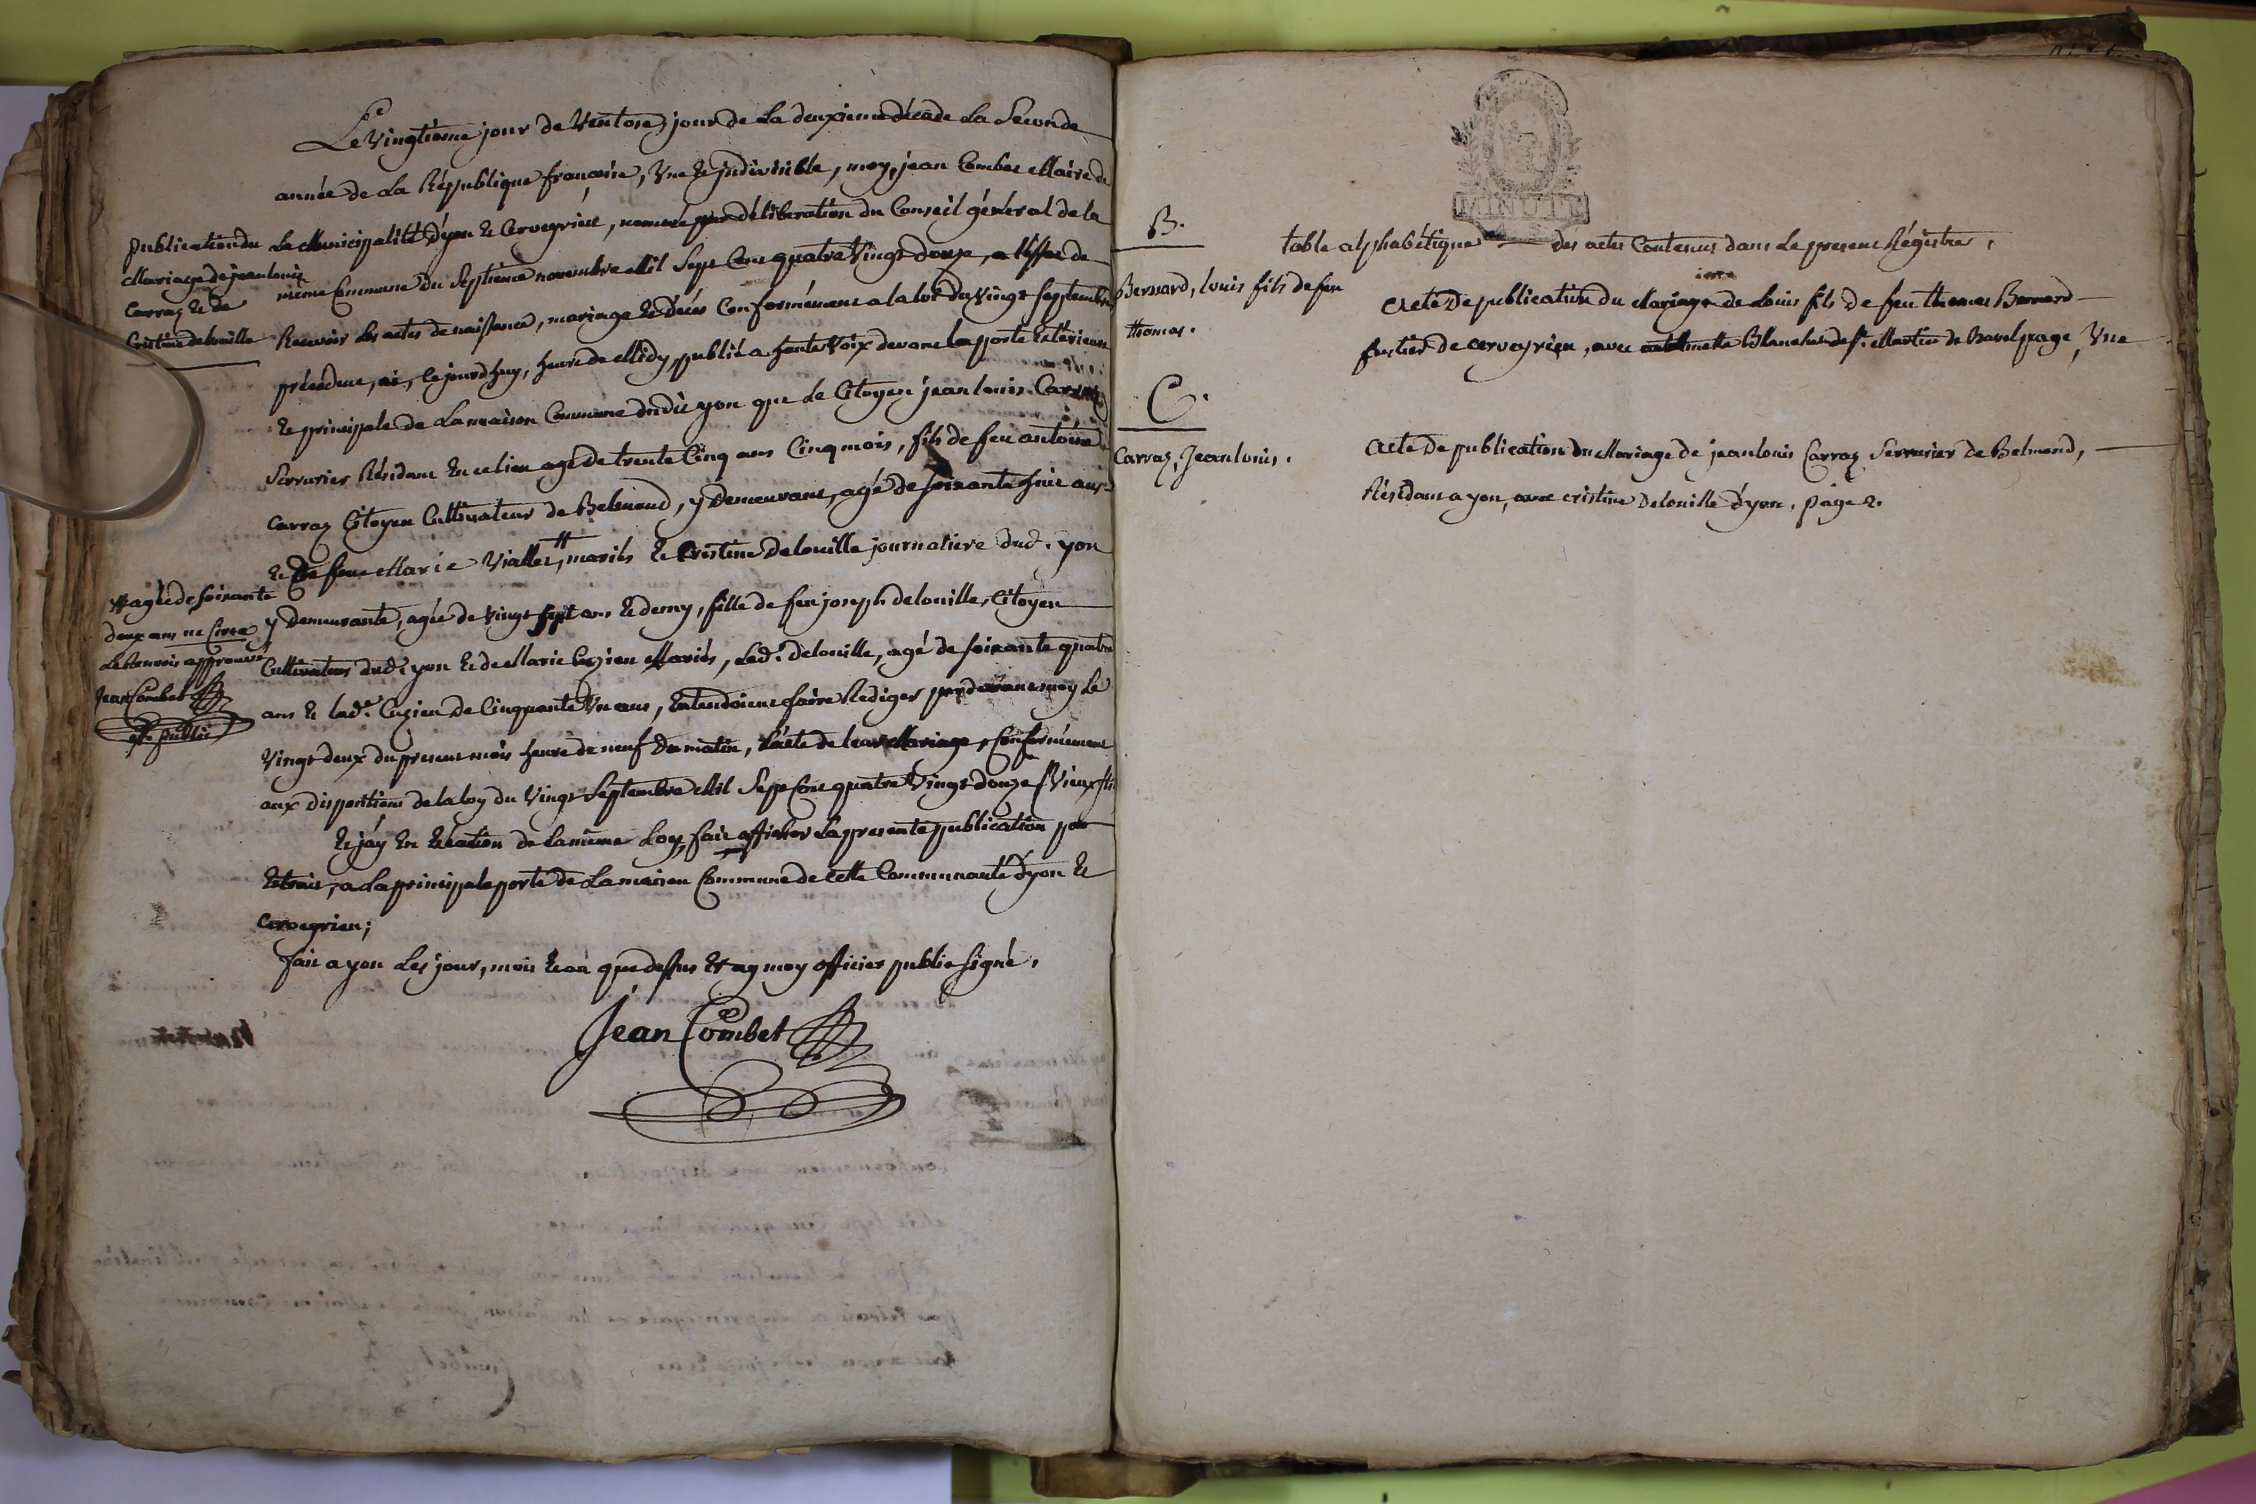 Le Vingtieme jour de Ventose, jour de La deuxieme décade La Seconde
année de La République françoise, Une et indivisible, moy, jean Combet Maire de
La Municipalité d'yon et Cerveyrieu, nommé par déliberation du Conseil général de la
même Commune du Septième novembre Mil Sept Cent quatre Vingt douze, a l'effet de
Recevoir Les actes de naissance, mariage et décès Conformément a la loi du Vingt Septembre
précédent, ai, Cejourd'huy, heure de Midy, publié a haute Voix devant la porte Extérieure
et principale de La maison Commune dudit yon que Le Citoyen jean louis Carraz
Serrurier Résidant En ce lieu agé de trente Cinq ans Cinq mois, fils de feu antoine
Carraz Citoyen Cultivateur de Belmond, y Demeurant, agé de soixante huit ans
et De feue Marie Viallet # mariés et Cristine Delouille journaliere dud. yon
y Demeurante, agée de Vingt sept ans et demy, fille de feu joseph delouille, Citoyen
Cultivateur dud. yon et de Marie Cuzieu Mariés, Led. Delouille, agé de soixante quatre
ans et lad.e Cuzieu de Cinquante Un ans, Entendoient faire Rediger pardevant moy Le
Vingt deux du present mois heure de neuf du matin, L'acte de leur Mariage, Conformément
aux dispositions de la loy du Vingt Septembre Mil Sept Cent quatre Vingt douze Vieux sti
Et j'ay En Exécution de La même Loy, fait afficher La presente publication par
Extrait, a La principale porte de La maison Commune de cette Communauté d'yon et
Cerveyrieu;
fait a yon Les jour, mois et an que dessus et ay moy officier public signé.
Jean Combet
publication du
Mariage de jean louis
Carraz et de
Cristine delouille
# agée de soixante
deux ans
Le Renvois approuvé
Jean Combet
off. public
MINUTE
table alphabétique des actes Contenus dans Le present Régistre.
B.
Bernard, louis fils de feu
thomas.
Acte De publication du Mariage de Louis fils De feu thomas Bernard
fustier de cerveyrieu, avec Blanchet de St. Martin de Bavel page Une
C.
Carraz, Jean louis.
Acte De publication du Mariage de jean louis Carraz Serrurier de Belmond,
Résidant a yon, avec cristine Delouille d'yon, page 2.